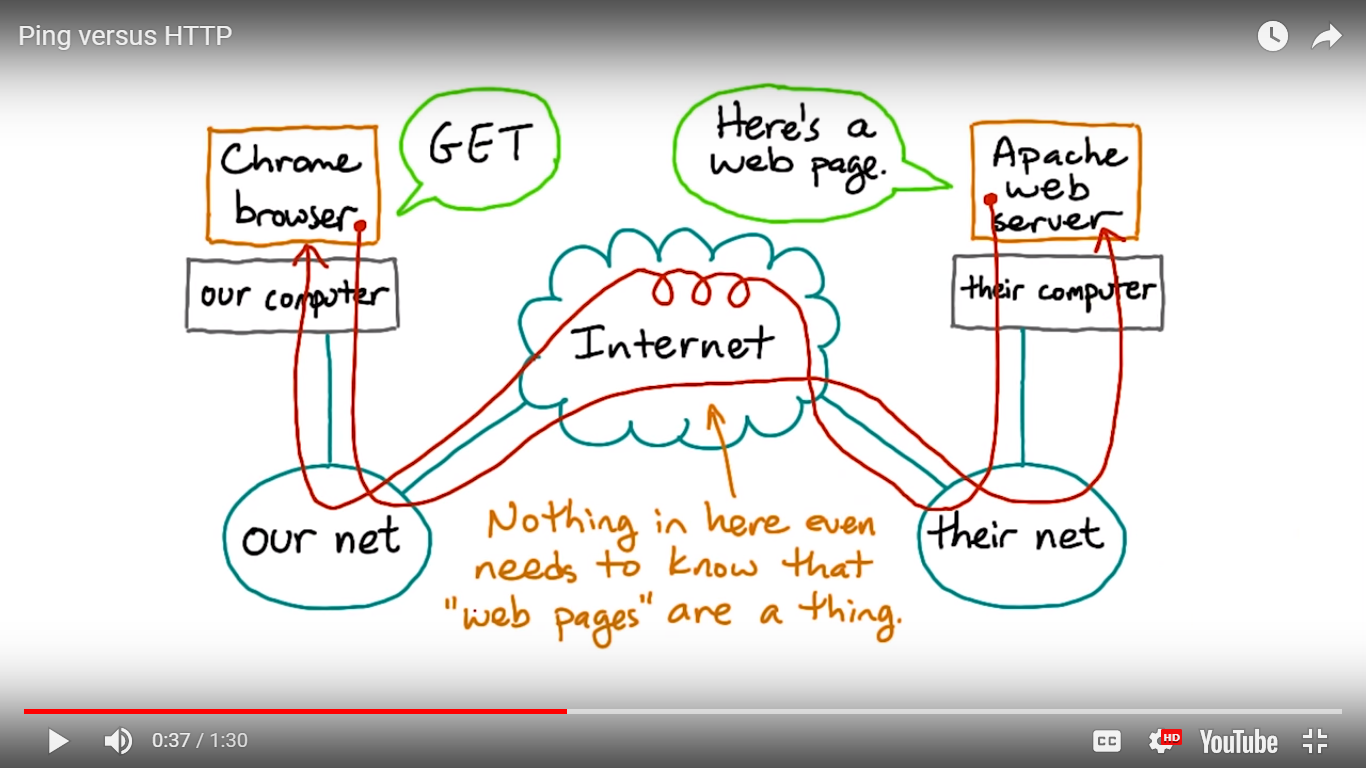 Ping versus HTTP
Chrome
browser
GET
Here's a
web page.
Apache
web
server
our computer
their computer
Internet
our net
their net
Nothing in here even
needs to know that
"web pages" are a thing.
0:37 / 1:30
CC
HD
YouTube